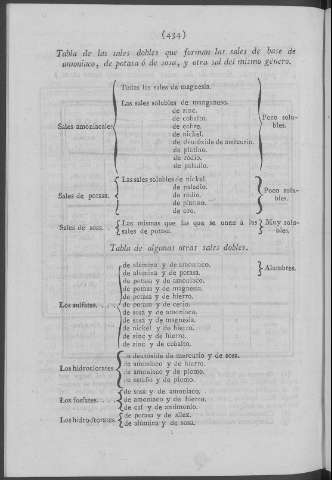 (434)
Tabla de las sales dobles que forman las sales de base de
amoniaco, de potasa ó de sosa, y otra sal del mismo género.
Todas las sales de magnesia.
Las sales solubles de manganeso.
de zinc.
de cobalto.
de cobre.
de nickel.
de deutóxido de mercurio.
de platino.
de rodio.
de paladio.
Sales amoniacales
Poco solu-
bles.
Las sales solubles de nickel.
de paladio.
de rodio.
de platino.
de oro.
Sales de potasa.
Poco solu-
bles.
Sales de sosa.
Las mismas que las que se unen á las
sales de potasa.
Muy solu-
bles.
Tabla de algunas otras sales dobles.
Los sulfatos. . . .
de alúmina y de amoniaco.
de alúmina y de potasa.
Alumbres.
de potasa y de amoniaco.
de potasa y de magnesia.
de potasa y de hierro.
de potasa y de cerio.
de sosa y de amoniaco.
de sosa y de magnesia.
de nickel y de hierro.
de zinc y de hierro.
de zinc y de cobalto.
Los hidrocloratos
de deutóxido de mercurio y de sosa.
de amoniaco y de hierro.
de amoniaco y de plomo.
de estaño y de plomo.
Los fosfatos. . . .
de sosa y de amoniaco.
de amoniaco y de hierro.
de cal y de antimonio.
de potasa y de sílex.
de alúmina y de sosa.